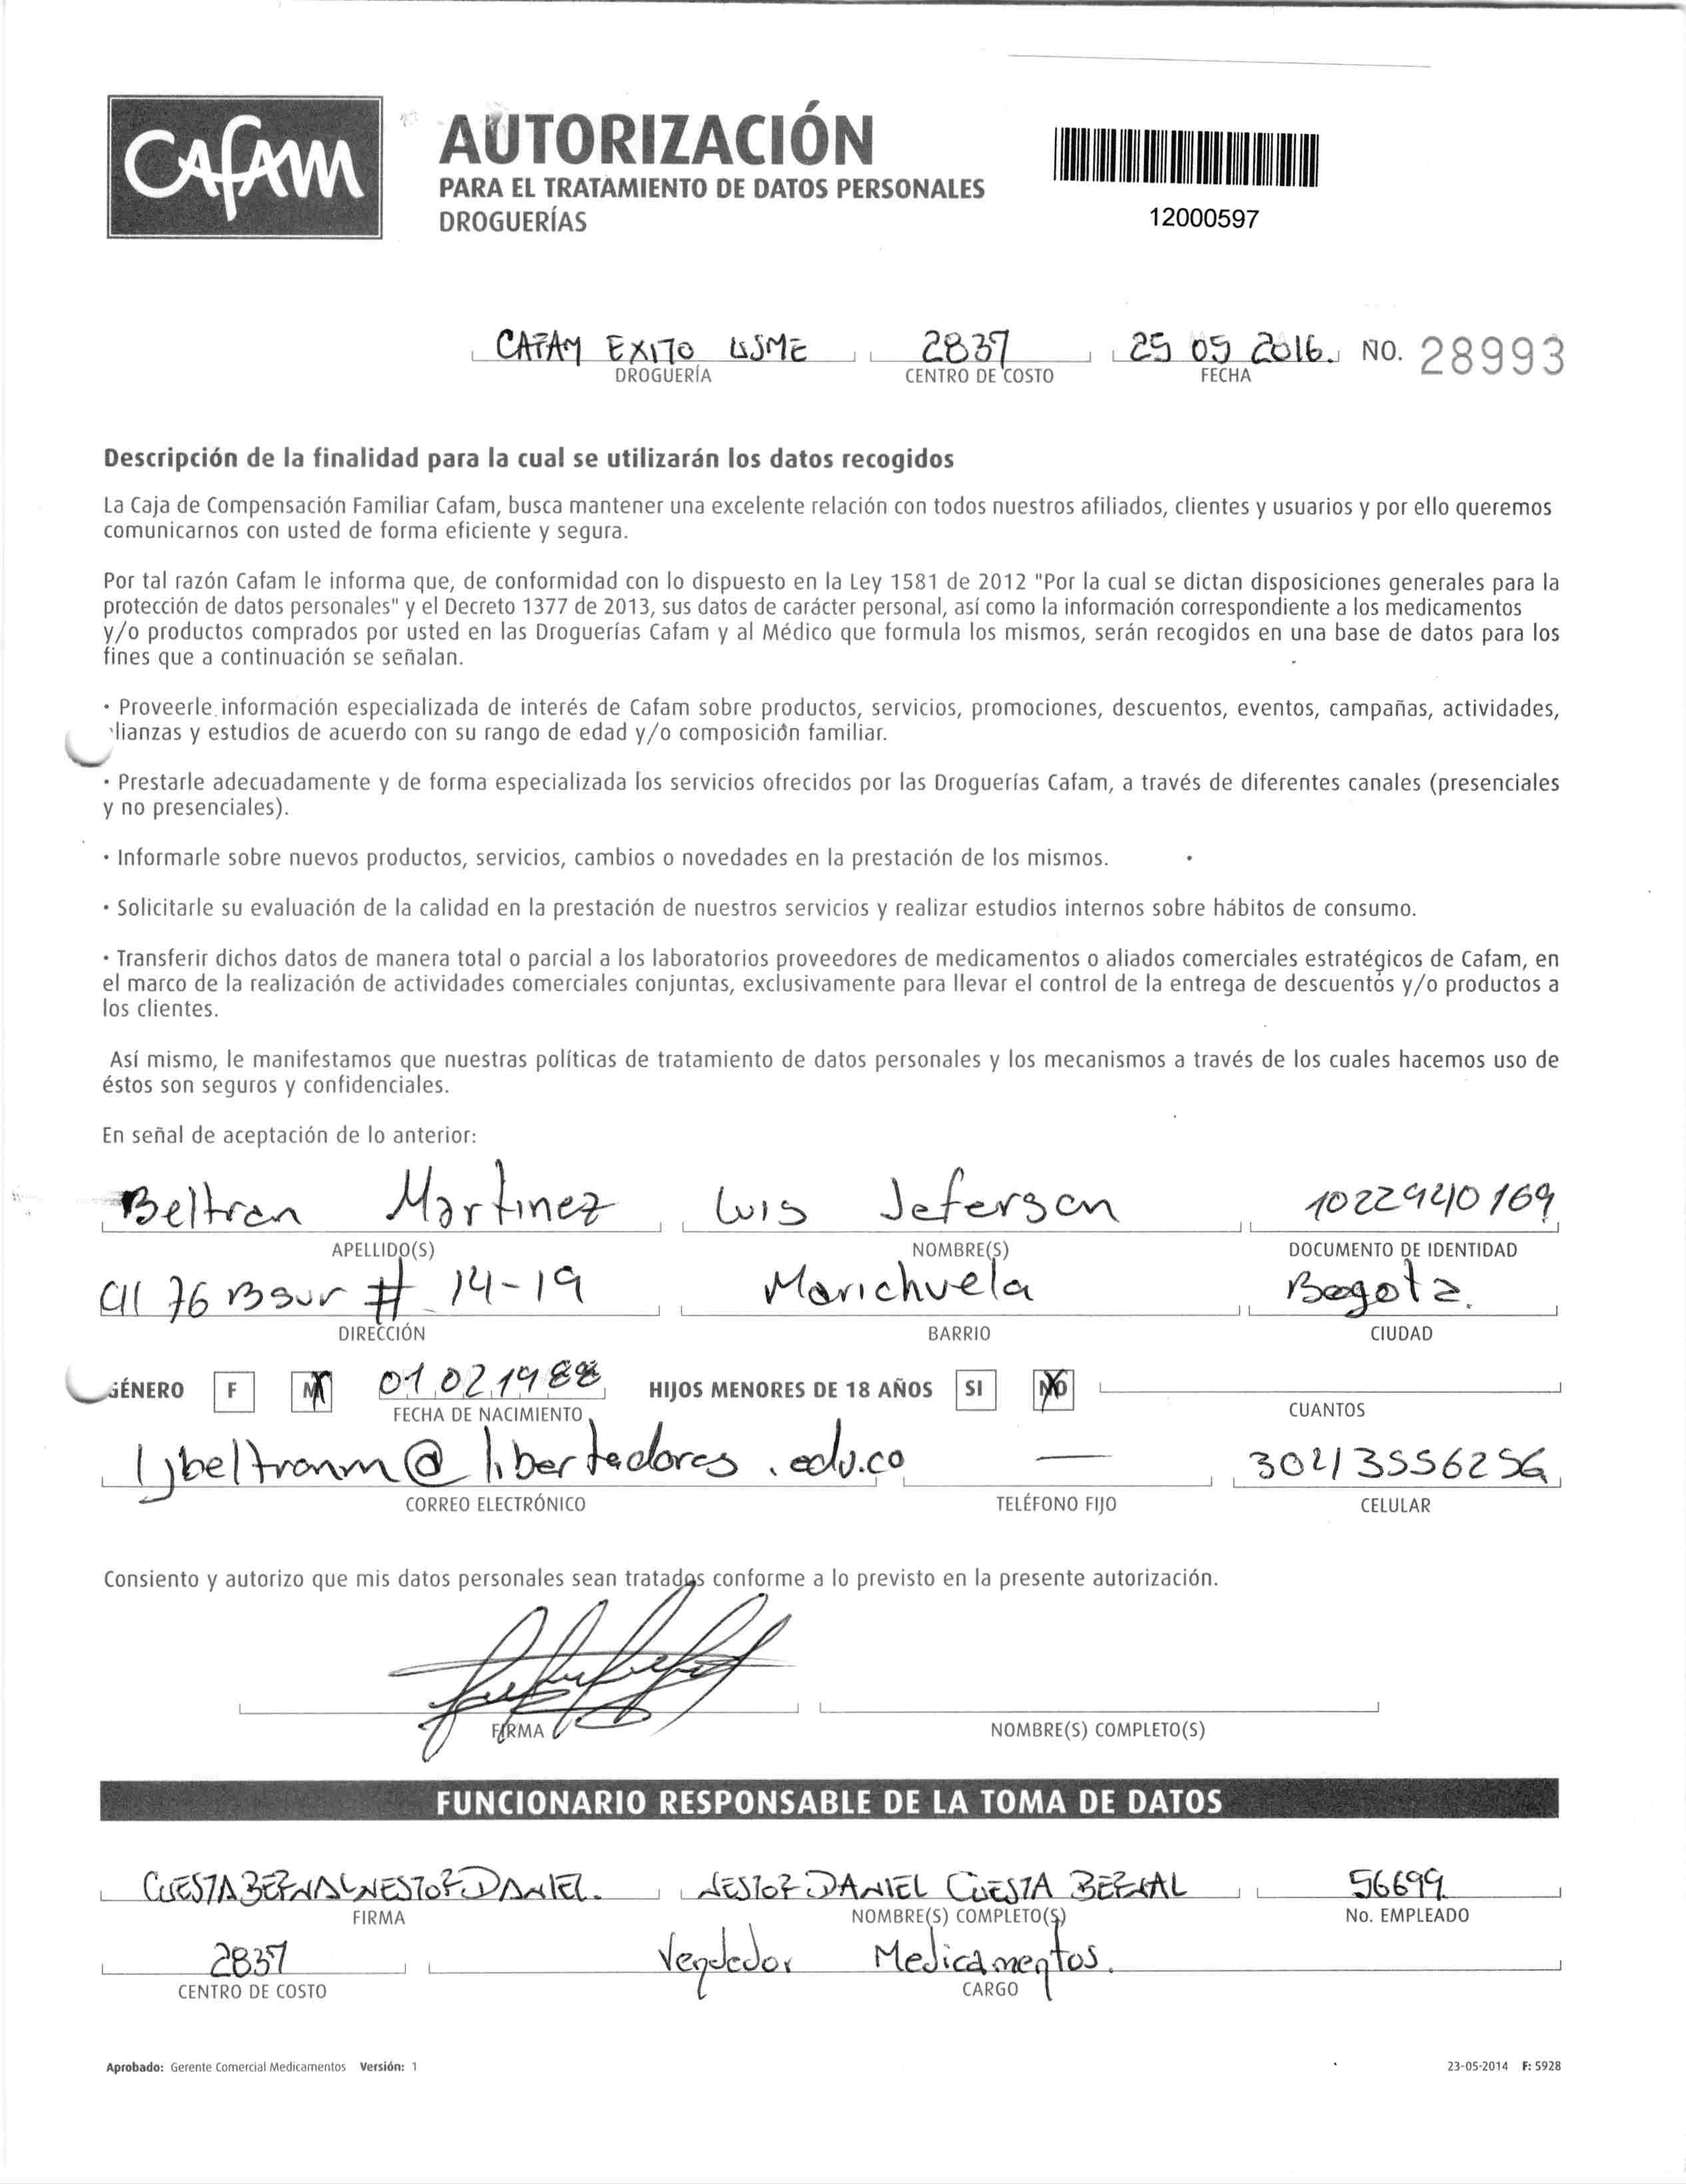 CAFAM
AUTORIZACIÓN
PARA EL TRATAMIENTO DE DATOS PERSONALES
DROGUERÍAS
12000597
CAFAM EXITO USME 2837 25 05 2016. NO. 28993
DROGUERÍA CENTRO DE COSTO FECHA
Descripción de la finalidad para la cual se utilizarán los datos recogidos
La Caja de Compensación Familiar Cafam, busca mantener una excelente relación con todos nuestros afiliados, clientes y usuarios y por ello queremos
comunicarnos con usted de forma eficiente y segura.
Por tal razón Cafam le informa que, de conformidad con lo dispuesto en la Ley 1581 de 2012 "Por la cual se dictan disposiciones generales para la
protección de datos personales" y el Decreto 1377 de 2013, sus datos de carácter personal, así como la información correspondiente a los medicamentos
y/o productos comprados por usted en las Droguerías Cafam y al Médico que formula los mismos, serán recogidos en una base de datos para los
fines que a continuación se señalan.
· Proveerle información especializada de interés de Cafam sobre productos, servicios, promociones, descuentos, eventos, campañas, actividades,
lianzas y estudios de acuerdo con su rango de edad y/o composición familiar.
· Prestarle adecuadamente y de forma especializada los servicios ofrecidos por las Droguerías Cafam, a través de diferentes canales (presenciales
y no presenciales).
· Informarle sobre nuevos productos, servicios, cambios o novedades en la prestación de los mismos.
· Solicitarle su evaluación de la calidad en la prestación de nuestros servicios y realizar estudios internos sobre hábitos de consumo.
· Transferir dichos datos de manera total o parcial a los laboratorios proveedores de medicamentos o aliados comerciales estratégicos de Cafam, en
el marco de la realización de actividades comerciales conjuntas, exclusivamente para llevar el control de la entrega de descuentos y/o productos a
los clientes.
Así mismo, le manifestamos que nuestras políticas de tratamiento de datos personales y los mecanismos a través de los cuales hacemos uso de
éstos son seguros y confidenciales.
En señal de aceptación de lo anterior:
Beltran Martinez Luis Jeferson 1022940169
APELLIDO(S) NOMBRE(S) DOCUMENTO DE IDENTIDAD
Cll 76 B sur # 14-19 Marichuela Bogota.
DIRECCIÓN BARRIO CIUDAD
GÉNERO F M 01 02 1988 HIJOS MENORES DE 18 AÑOS SI NO
FECHA DE NACIMIENTO CUANTOS
ljbeltranm@libertadores.edu.co —
CORREO ELECTRÓNICO TELÉFONO FIJO CELULAR
Consiento y autorizo que mis datos personales sean tratados conforme a lo previsto en la presente autorización.
FIRMA NOMBRE(S) COMPLETO(S)
FUNCIONARIO RESPONSABLE DE LA TOMA DE DATOS
CUESTA BERNAL NESTOR DANIEL. NESTOR DANIEL CUESTA BERNAL 56699
FIRMA NOMBRE(S) COMPLETO(S) No. EMPLEADO
2837 Vendedor Medicamentos.
CENTRO DE COSTO CARGO
Aprobado: Gerente Comercial Medicamentos Versión: 1 23-05-2014 F: 5928